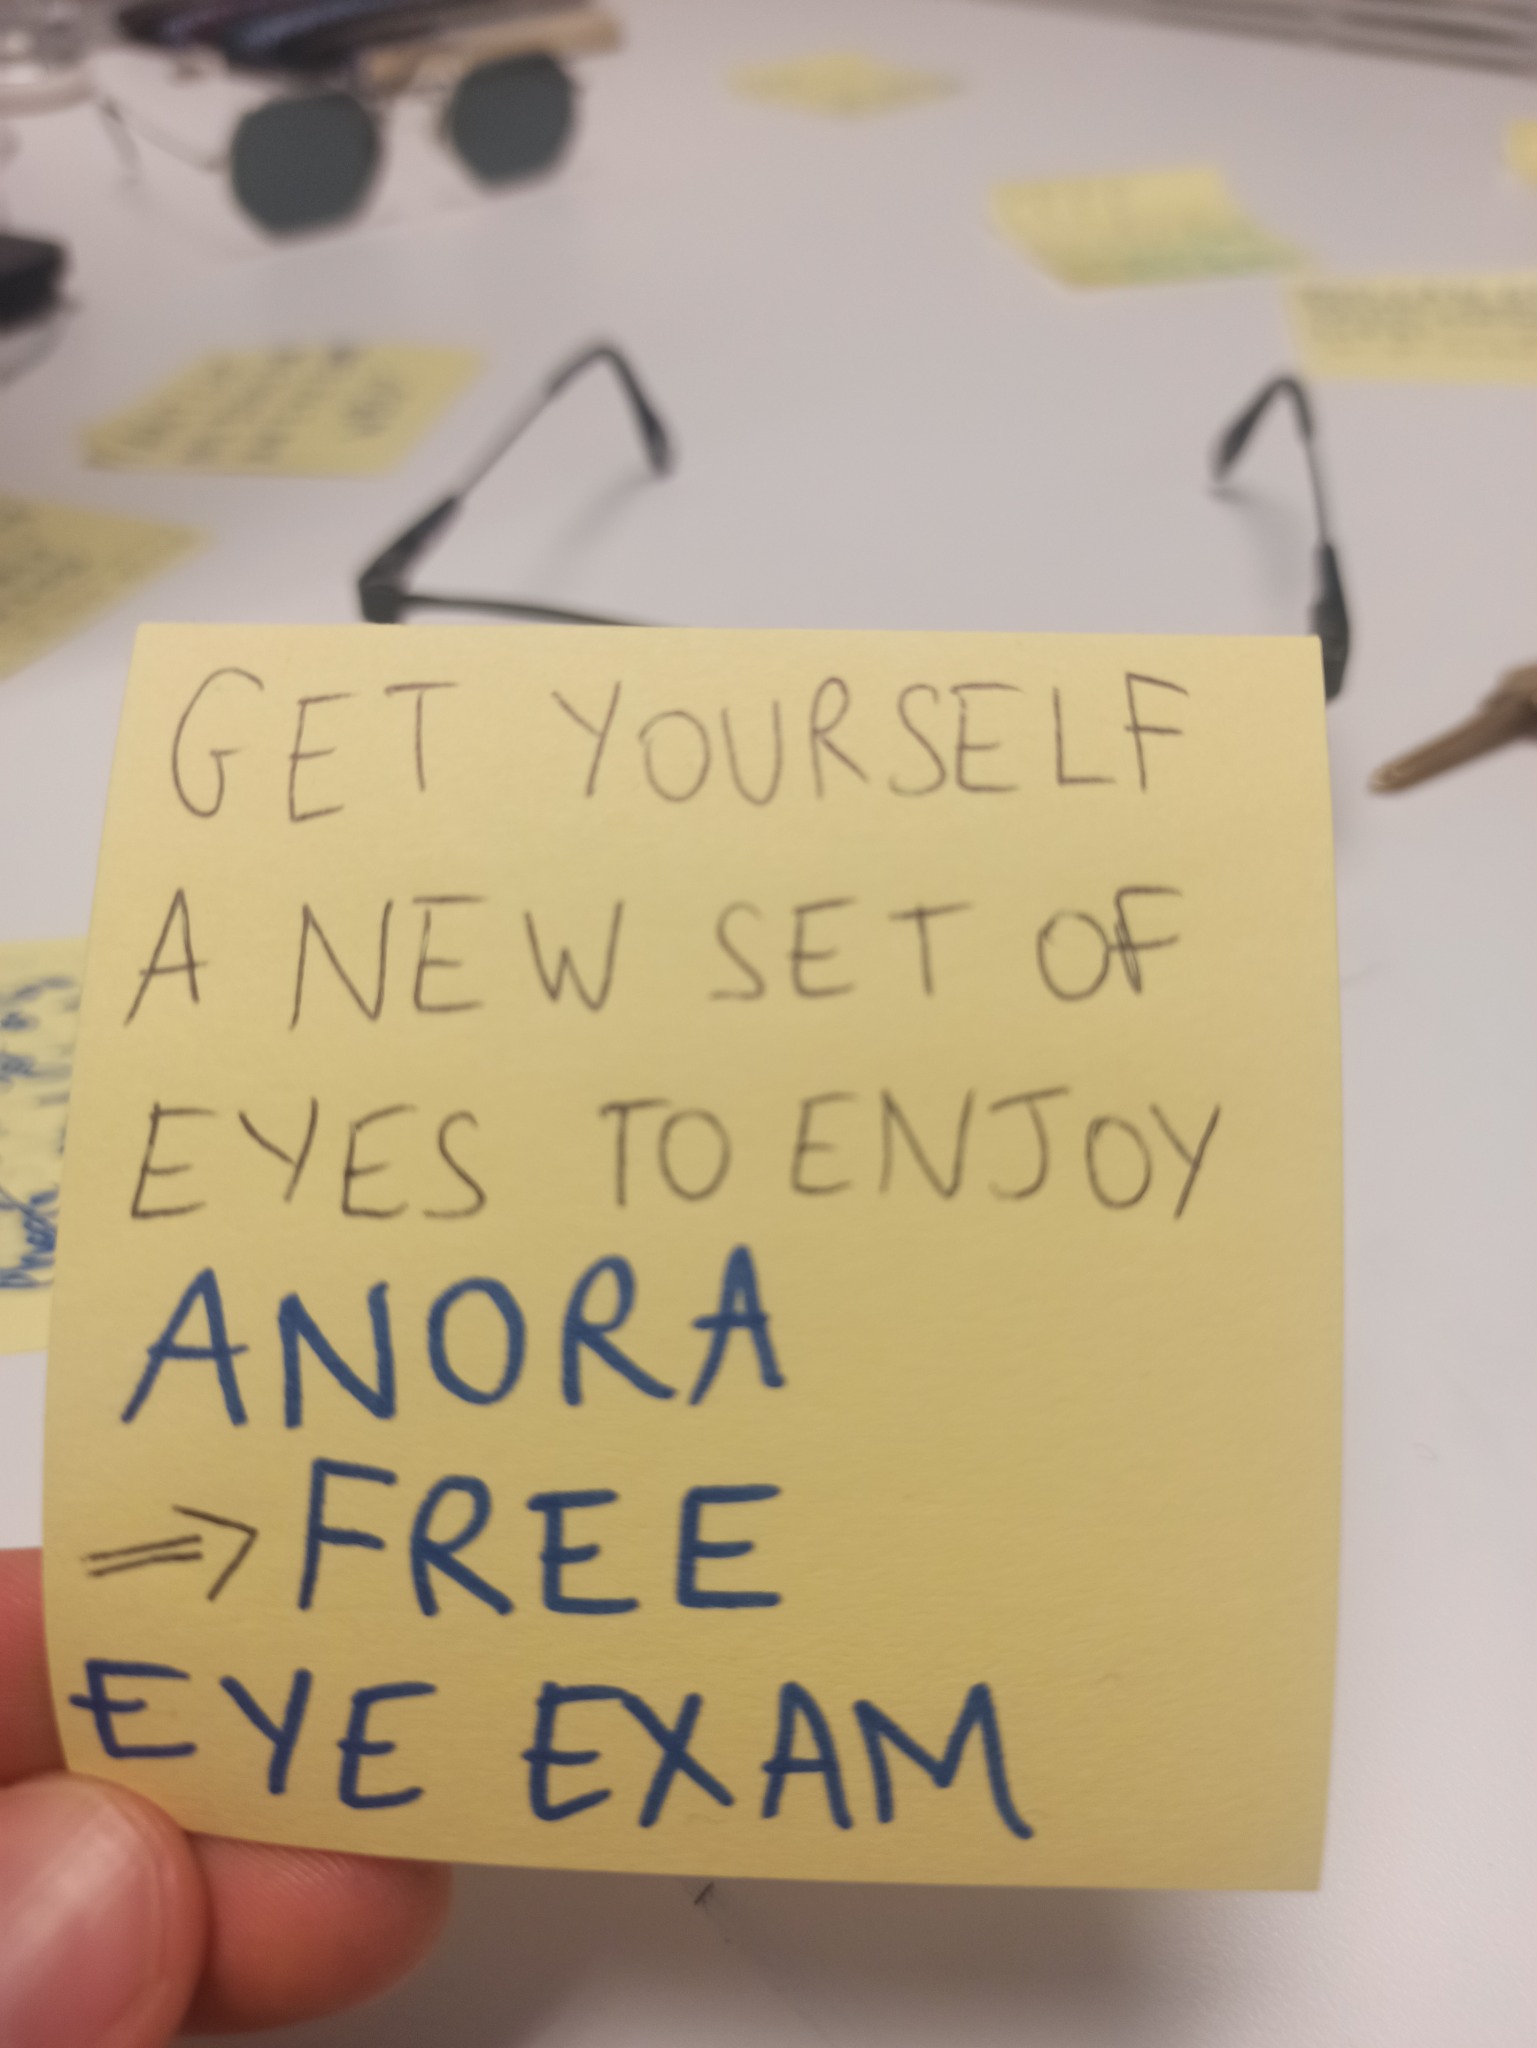 GET YOURSELF
A NEW SET OF
EYES TO ENJOY
ANORA
⇒ FREE
EYE EXAM